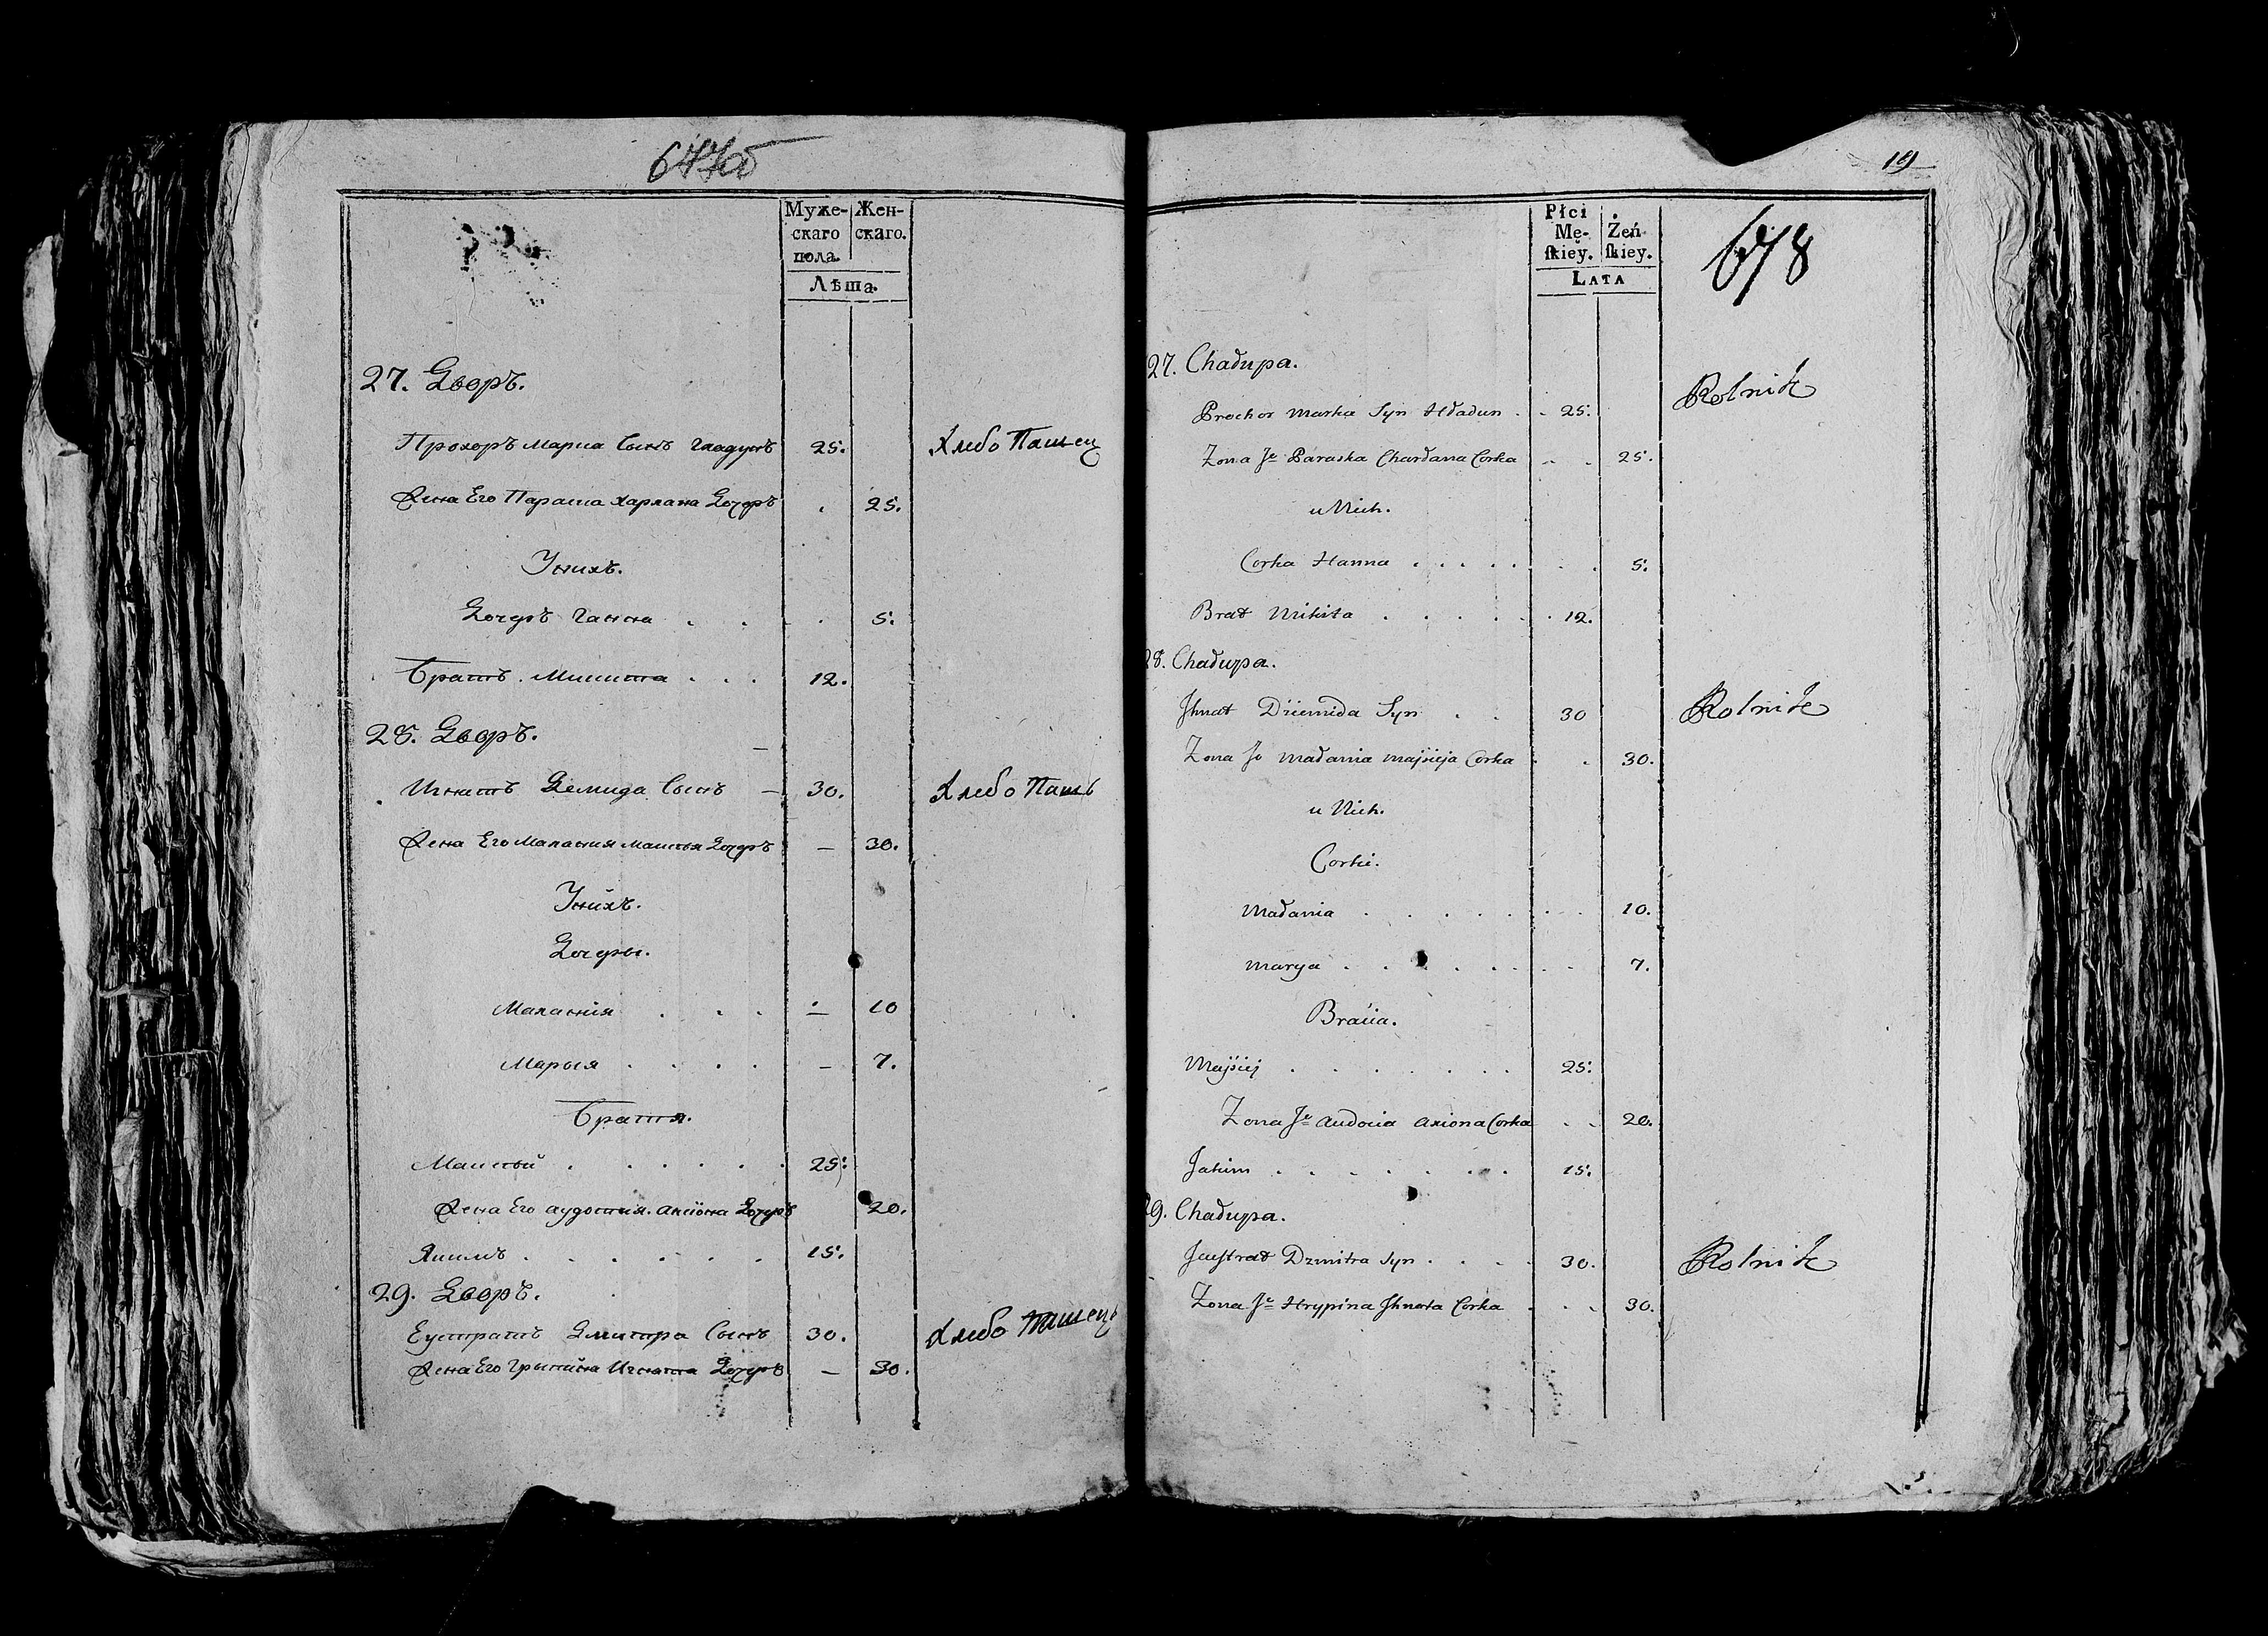 677об
Муже-
скаго
пола.
Жен-
скаго.
Лѣта.
27. Дворъ.
Прохоръ Марка Сынъ Гладунъ 25. Хлебо Пашец
Жена Его Параша Харлана Дочеръ . 25.
Унихъ.
Дочеръ Ганна . . . . 5.
Братъ Микита . . . 12.
28. Дворъ.
Игнатъ Демида Сынъ — 30. Хлебо Пашъ
Жена Его Малания Маисѣя Дочеръ — 30.
Унихъ.
Дочеры.
Малания . . . — 10
Марыя . . . . — 7.
Братя.
Маисѣй . . . . . . 25.
Жена Его Аудотия Аксіона Дочеръ 20.
Якимъ . . . . . . 15.
29. Дворъ.
Еустратъ Дмитра Сынъ 30. Хлебо Пашецъ
Жена Его Грыпина Игната Дочеръ — 30.
19
678
Płci
Mę-
ſkiey.
Żeń
ſkiey.
LATA
27. Chadupa.
Prochor Marka Syn Hdadun . . 25. Rolnik
Zona Je Paraska Chardana Corka . . 25.
u Nich.
Corka Hanna . . . . . . . 5.
Brat Mikita . . . . . . 12.
28. Chadupa.
Jhnat Dziemida Syn . . 30 Rolnik
Zona Jo Madania Majsieja Corka . . 30.
u Nich.
Corki.
Madania . . . . . . . . 10.
Marya . . . . . . . . 7.
Bracia.
Majsiej . . . . . . . 25.
Zona Je Audocia Axiona Corka . . 20.
Jakim . . . . . . . 15.
29. Chadupa.
Jeustrat Dzmitra Syn . . . . 30. Rolnik
Zona Je Hrypina Jhnata Corka . . . 30.